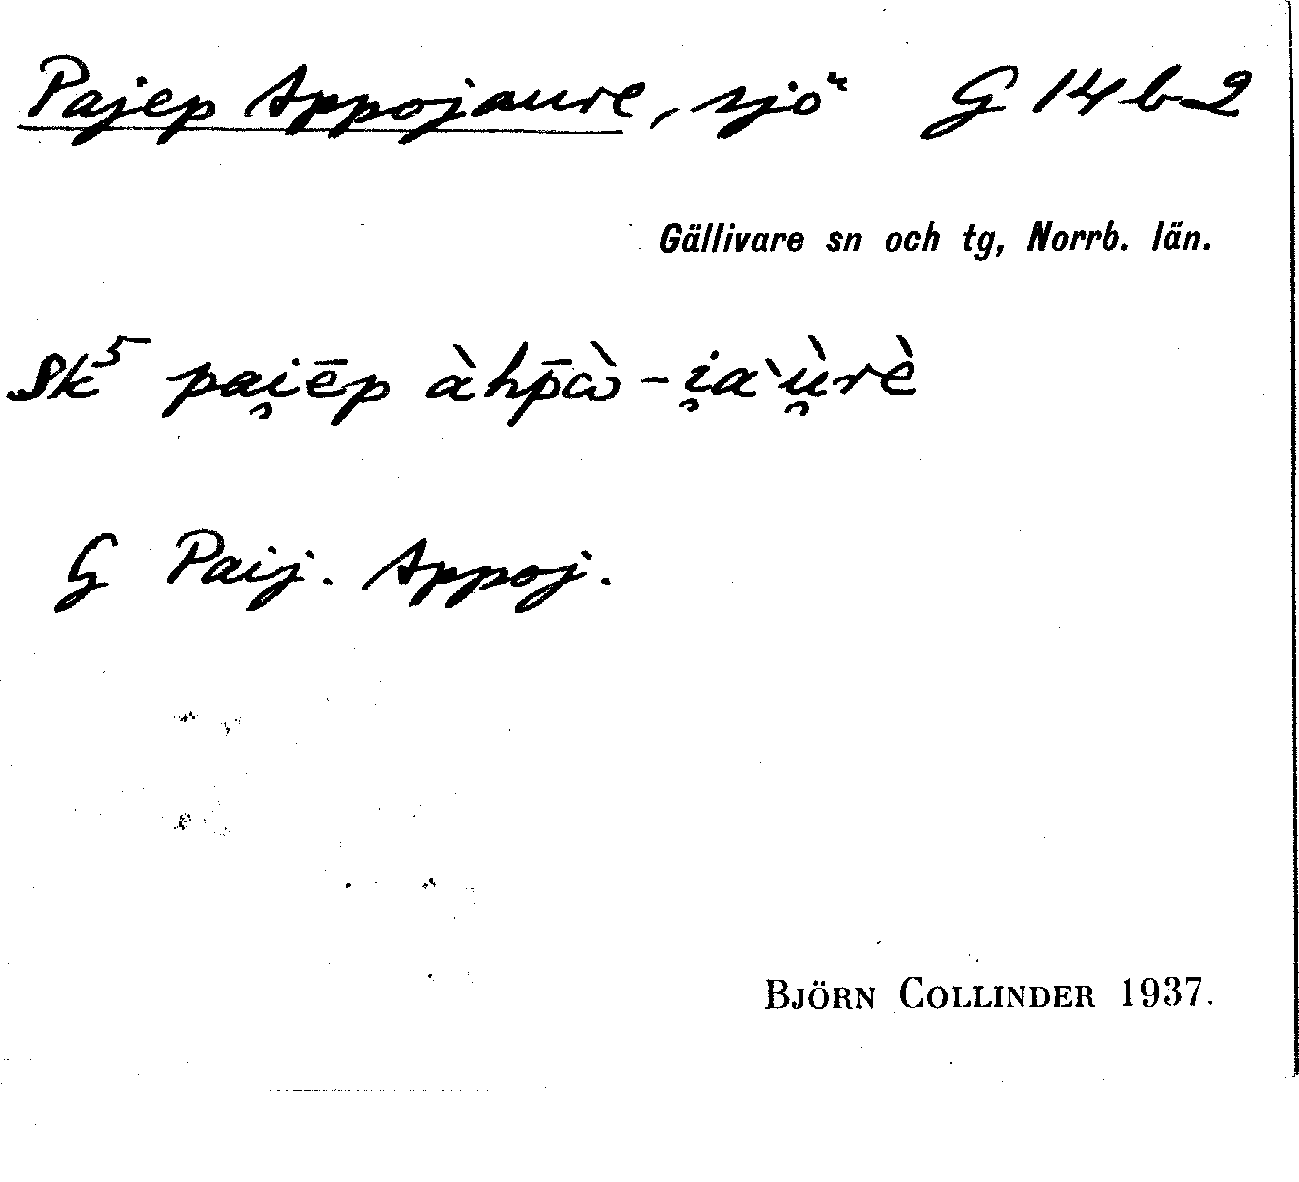 Pajep Appojaure, sjö G 14 b 2
Gällivare sn och tg, Norrb. län.
Sk⁵ pai̯ēp àhp̄ὼ-i̯aˋù̯rè
G Paij. Appoj.
BJÖRN COLLINDER 1937.